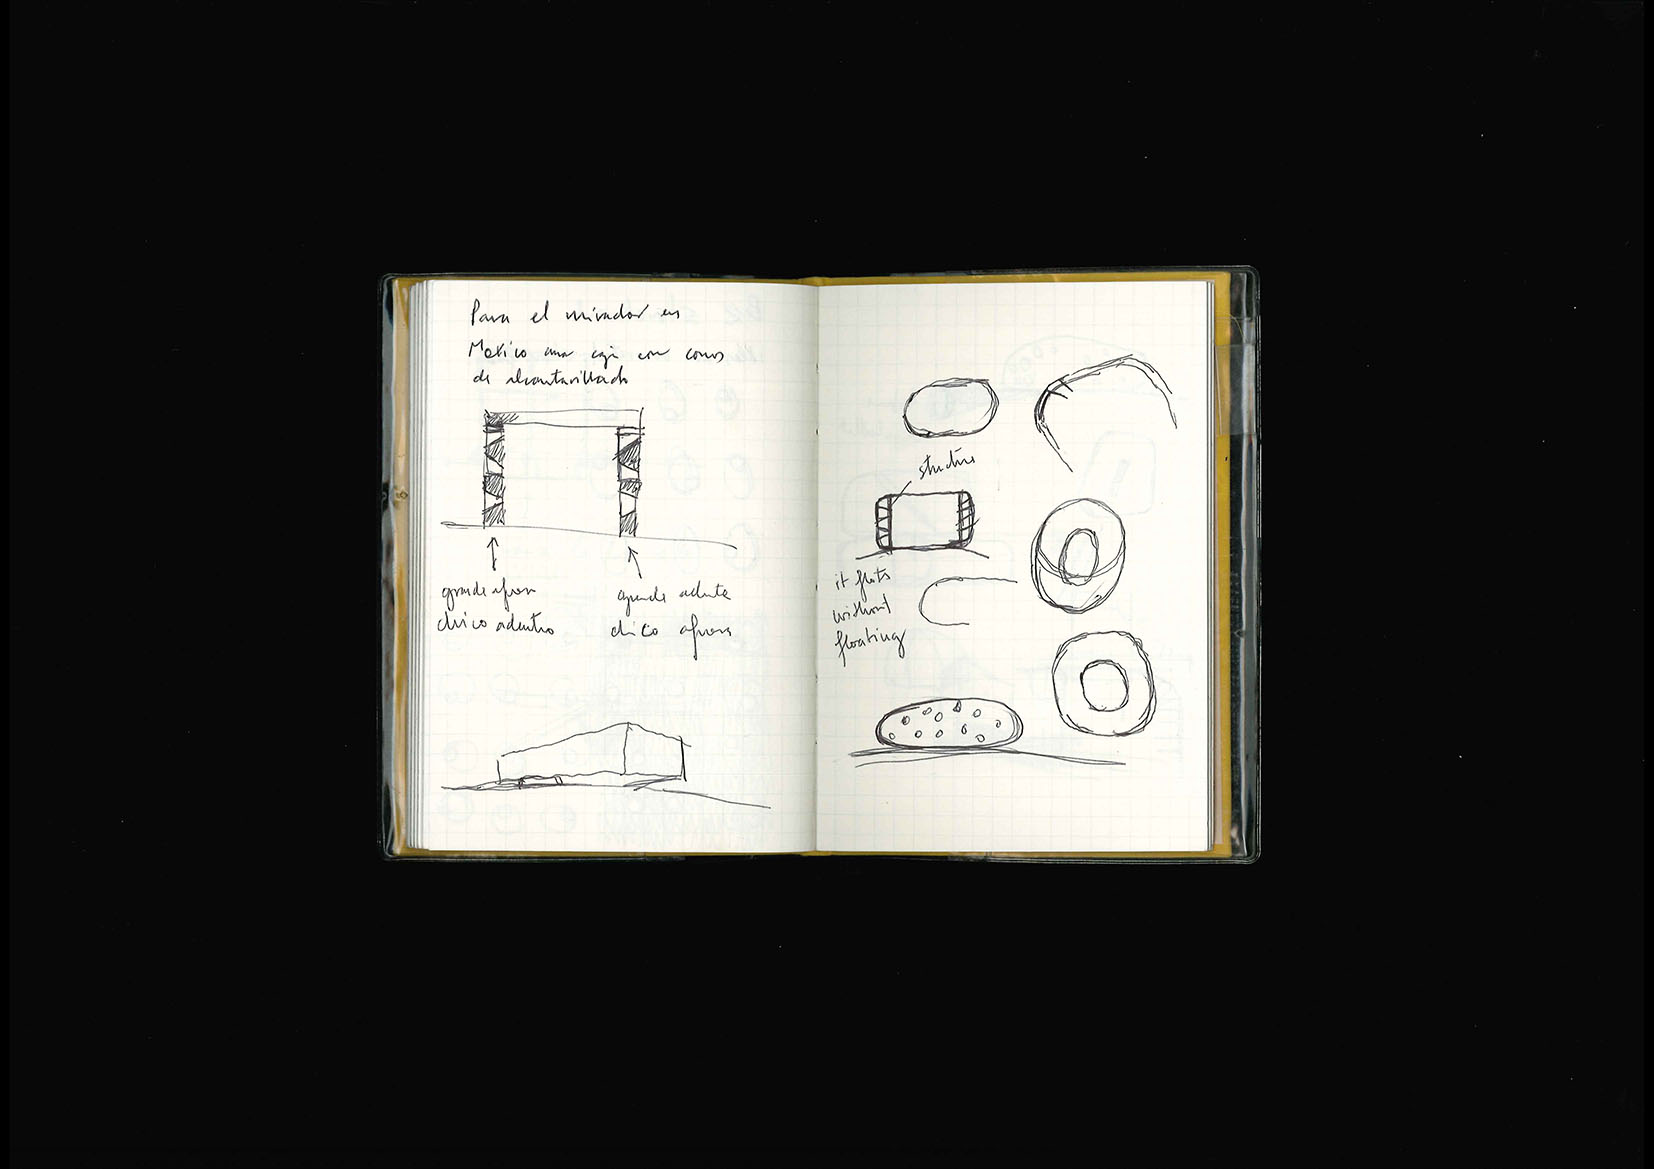 Para el mirador en
Mexico una caja con conos
de alcantarillado
grande afuera
chico adentro
grande adentro
chico afuera
structure
it floats
without
floating